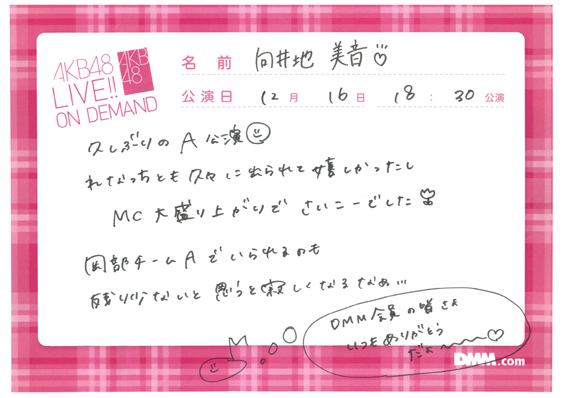 AKB48
LIVE!!
ON DEMAND
AKB
48
名前 向井地 美音
公演日 12月 16日 18:30公演
久しぶりの A 公演
れなっちとも久々に出られて嬉しかったし
MC大盛り上がりで さいこーでした
岡部チームAでいられるのも
残り少ないと思うと寂しくなるなぁ...
DMM会員の皆さま
いつもありがとう
だぁ〜
DMM.com